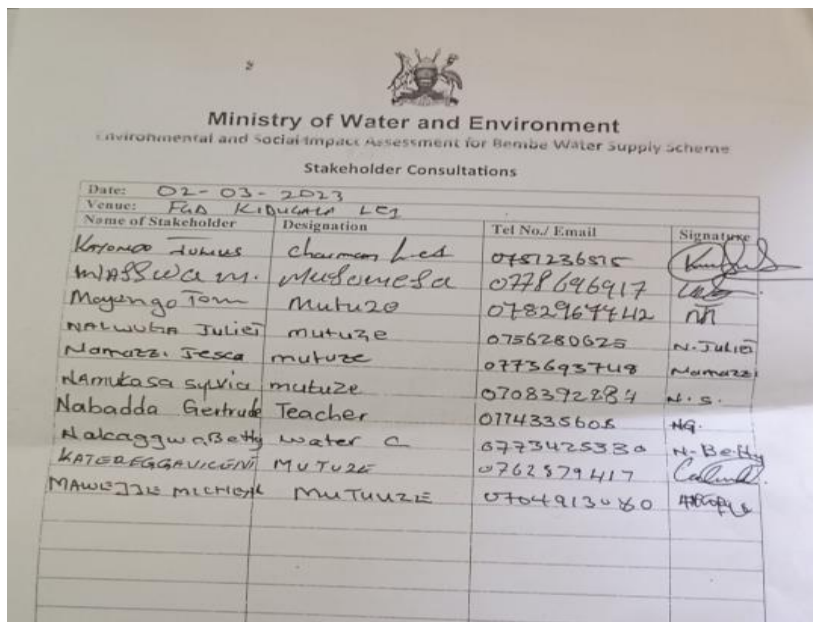 Ministry of Water and Environment
Environmental and Social Impact Assessment for Bembe Water Supply Scheme
Stakeholder Consultations
Date: 02-03-2023
Venue: FGD KIDUGALA LC1
Name of Stakeholder Designation Tel No./ Email Signature
Kayongo Julius Chairman 0751236515
M. 0778696917
Mayengo Tom Mutuze 0782967742
NALWOGA JULIET mutuze 0756280625 N. Juliet
Namazzi Jesca mutuze 0773693748 Namazzi
NAMUKASA Sylvia mutuze 0708392284 N.S.
Nabadda Gertrude Teacher 0774335605 NG.
Nakaggwa Betty Water C 0773425330 N-Betty
MUTUZE 0762879417
MAWEJJE MICHEAL MUTUUZE